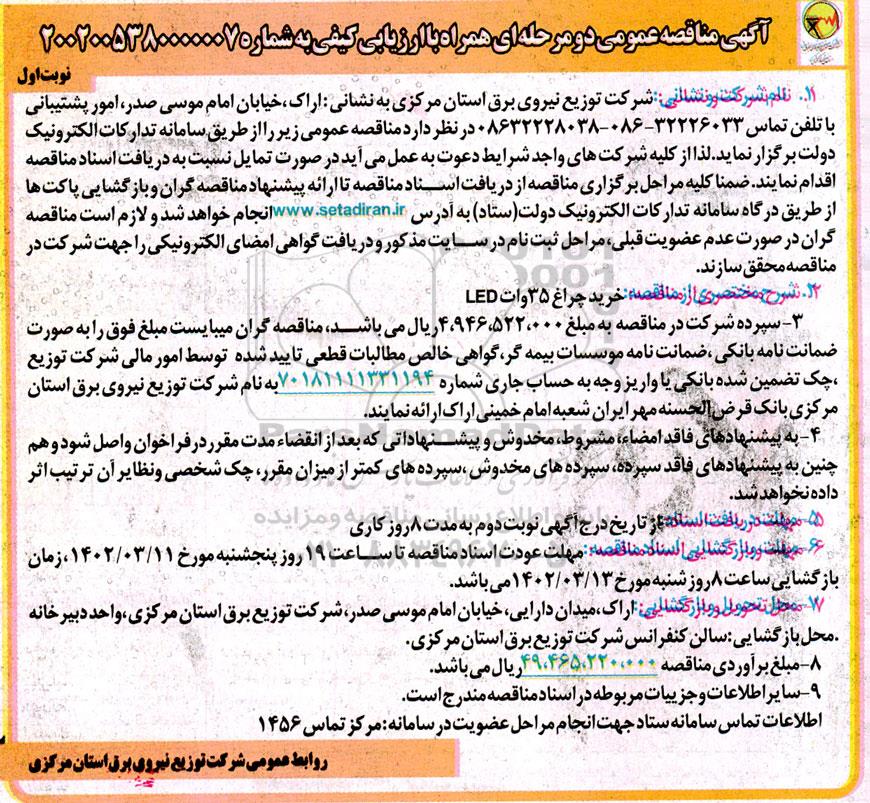 آگهی مناقصه عمومی دو مرحله ای همراه با ارزیابی کیفی به شماره ۲۰۰۲۰۰۵۳۸۰۰۰۰۰۰۷
نوبت اول
۱. نام شرکت و نشانی: شرکت توزیع نیروی برق استان مرکزی به نشانی : اراک، خیابان امام موسی صدر، امور پشتیبانی
با تلفن تماس ۳۲۲۲۶۰۳۳-۰۸۶-۰۸۶۳۲۲۲۸۰۳۸ در نظر دارد مناقصه عمومی زیر را از طریق سامانه تدارکات الکترونیک
دولت برگزار نماید. لذا از کلیه شرکت های واجد شرایط دعوت به عمل می آید در صورت تمایل نسبت به دریافت اسناد مناقصه
اقدام نمایند. ضمنا کلیه مراحل برگزاری مناقصه از دریافت اسناد مناقصه تا ارائه پیشنهاد مناقصه گران و بازگشایی پاکت ها
از طریق درگاه سامانه تدارکات الکترونیک دولت (ستاد) به آدرس www.setadiran.ir انجام خواهد شد و لازم است مناقصه
گران در صورت عدم عضویت قبلی، مراحل ثبت نام در سایت مذکور و دریافت گواهی امضای الکترونیکی را جهت شرکت در
مناقصه محقق سازند.
۲. شرح مختصری از مناقصه: خرید چراغ ۳۵ وات LED
۳- سپرده شرکت در مناقصه به مبلغ ۴،۹۴۶،۵۲۲،۰۰۰ ریال می باشد، مناقصه گران میبایست مبلغ فوق را به صورت
ضمانت نامه بانکی، ضمانت نامه موسسات بیمه گر، گواهی خالص مطالبات قطعی تایید شده توسط امور مالی شرکت توزیع
،چک تضمین شده بانکی یا واریز وجه به حساب جاری شماره ۷۰۱۸۱۱۱۱۳۳۱۱۹۴ به نام شرکت توزیع نیروی برق استان
مرکزی بانک قرض الحسنه مهر ایران شعبه امام خمینی اراک ارائه نمایند.
۴- به پیشنهادهای فاقد امضاء، مشروط، مخدوش و پیشنهاداتی که بعد از انقضاء مدت مقرر در فراخوان واصل شود و هم
چنین به پیشنهادهای فاقد سپرده، سپرده های مخدوش، سپرده های کمتر از میزان مقرر، چک شخصی ونظایر آن ترتیب اثر
داده نخواهد شد.
۵- مهلت دریافت اسناد: از تاریخ درج آگهی نوبت دوم به مدت ۸ روز کاری
۶- مهلت و بازگشایی اسناد مناقصه: مهلت عودت اسناد مناقصه تا ساعت ۱۹ روز پنجشنبه مورخ ۱۴۰۲/۰۳/۱۱، زمان
بازگشایی ساعت ۸ روز شنبه مورخ ۱۴۰۲/۰۳/۱۳ می باشد.
۷- محل تحویل و بازگشایی: اراک، میدان دارایی، خیابان امام موسی صدر، شرکت توزیع برق استان مرکزی، واحد دبیرخانه
.محل بازگشایی: سالن کنفرانس شرکت توزیع برق استان مرکزی.
۸- مبلغ برآوردی مناقصه ۴۹،۴۶۵،۲۲۰،۰۰۰ ریال می باشد.
۹- سایر اطلاعات و جزییات مربوطه در اسناد مناقصه مندرج است.
اطلاعات تماس سامانه ستاد جهت انجام مراحل عضویت در سامانه: مرکز تماس ۱۴۵۶
روابط عمومی شرکت توزیع نیروی برق استان مرکزی